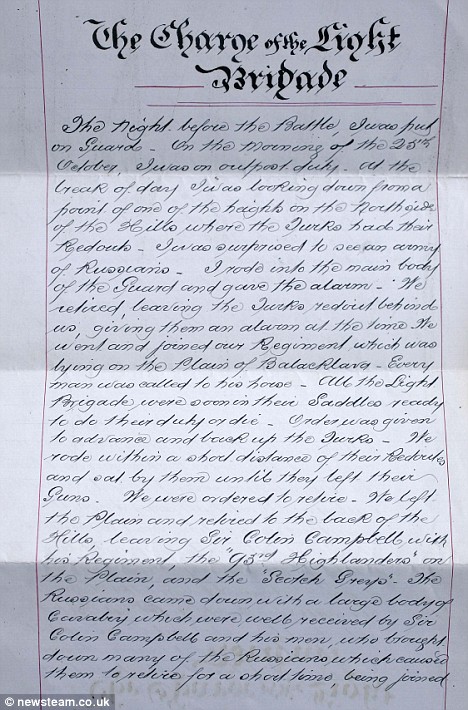 The Charge of the Light
Brigade
The Night before the Battle, I was put
on Guard - On the Morning of the 25th
October, I was on outpost duty - At the
break of day I was looking down from a
point of one of the heights on the North side
of the Hills where the Turks had their
Redoubt - I was surprised to see an army
of Russians - I rode into the main body
of the Guard and gave the alarm - We
retired, leaving the Turks redout behind
us, giving them an alarm at the time We
went and joined our Regiment which was
lying on the Plain of Balacklava - Every
man was called to his horse - All the Light
Brigade, were soon in their Saddles ready
to do their duty or die - Order was given
to advance and back up the Turks - We
rode within a short distance of their Redouts
and sat by them until they left their
Guns. We were ordered to retire - We left
the Plain and retired to the back of the
Hills, leaving Sir Colin Campbell with
his Regiment, the "93rd Highlanders" on
the Plain, and the 'Scotch Greys' - The
Russians came down with a large body of
Cavalry which were well received by Sir
Colin Campbell and his men, who brought
down many of the Russians which caused
them to retire for a short time being joined
© newsteam.co.uk